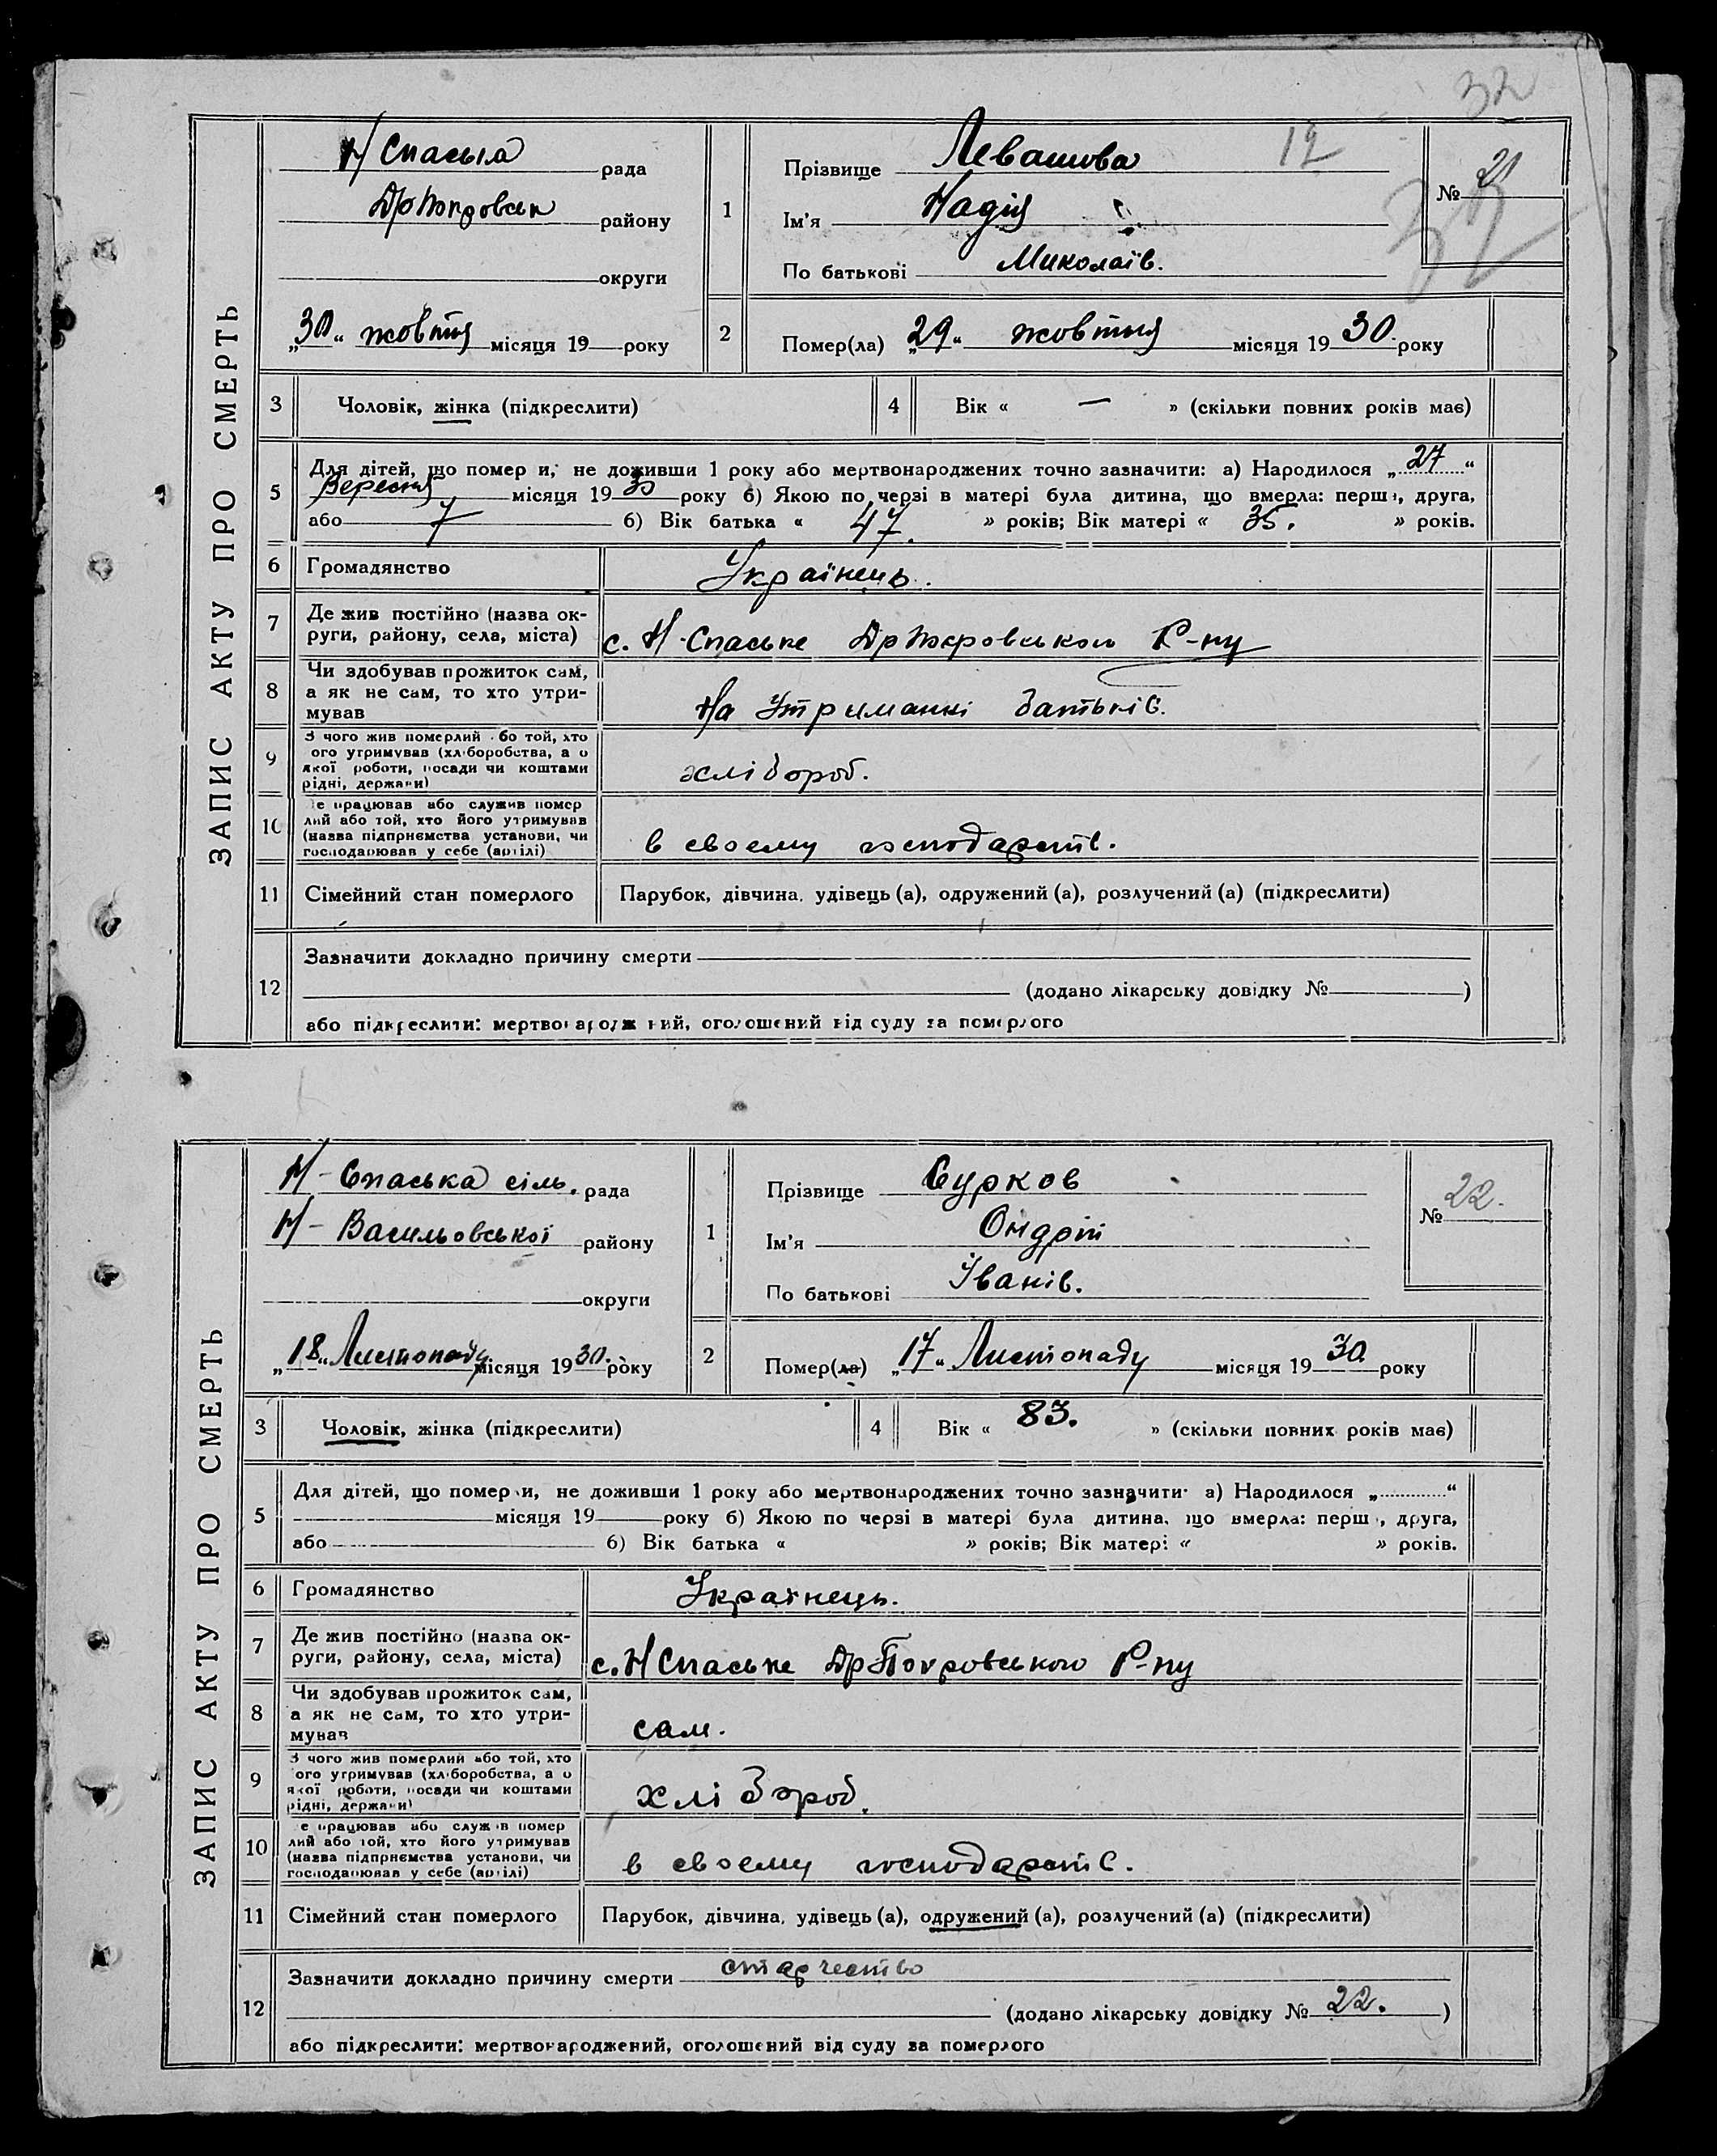 32
ЗАПИС АКТУ ПРО СМЕРТЬ
Н Спаська рада
району
округи
„30“ жовтня місяця 19 року
1
Прізвище Левашова
12
Ім'я Надія
По батькові Миколаїв.
№ 21
32
2
Помер(ла) „29“ жовтня місяця 1930. року
3
Чоловік, жінка (підкреслити)
4
Вік « — » (скільки повних років має)
5
Для дітей, що помер и, не доживши 1 року або мертвонароджених точно зазначити: а) Народилося „27“
Вересня місяця 1930 року б) Якою по черзі в матері була дитина, що вмерла: перш, друга,
або 7 б) Вік батька « 47. » років; Вік матері « 35. » років.
6
Громадянство
Українець.
7
Де жив постійно (назва ок-
руги, району, села, міста)
с. Н-Спаське Р-ну
8
Чи здобував прожиток сам,
а як не сам, то хто утри-
мував
На Утриманні батьків.
9
З чого жив померлий або той, хто
ого утримував (хліборобства, а о
якої роботи, посади чи коштами
рідні, держави)
хлібороб.
10
е працював або служив помер
лий або той, хто його утримував
(назва підприємства установи, чи
господарював у себе (артілі)
в своему господарств.
11
Сімейний стан померлого
Парубок, дівчина, удівець (а), одружений (а), розлучений (а) (підкреслити)
12
Зазначити докладно причину смерти
(додано лікарську довідку № )
або підкреслити: мертвонароджений, оголошений від суду за померлого
ЗАПИС АКТУ ПРО СМЕРТЬ
Н-Спаська сіль. рада
Н-Васильовської району
округи
„18“ Листопаду місяця 1930. року
1
Прізвище Сурков
Ім'я Ондрій
По батькові Іванів.
№ 22.
2
Помер(ла) „17“ Листопаду місяця 1930 року
3
Чоловік, жінка (підкреслити)
4
Вік « 83. » (скільки повних років має)
5
Для дітей, що померли, не доживши 1 року або мертвонароджених точно зазначити: а) Народилося „ “
місяця 19 року б) Якою по черзі в матері була дитина, що вмерла: перш, друга,
або б) Вік батька « » років; Вік матері « » років.
6
Громадянство
Українець.
7
Де жив постійно (назва ок-
руги, району, села, міста)
с. Н Спаське ДрПокровського Р-ну
8
Чи здобував прожиток сам,
а як не сам, то хто утри-
мував
сам.
9
З чого жив померлий або той, хто
ого утримував (хліборобства, а о
якої роботи, посади чи коштами
рідні, держави)
хлібороб.
10
е працював або служив помер
лий або той, хто його утримував
(назва підприємства установи, чи
господарював у себе (артілі)
в своему господарств.
11
Сімейний стан померлого
Парубок, дівчина, удівець (а), одружений (а), розлучений (а) (підкреслити)
12
Зазначити докладно причину смерти старчество
(додано лікарську довідку № 22. )
або підкреслити: мертвонароджений, оголошений від суду за померлого